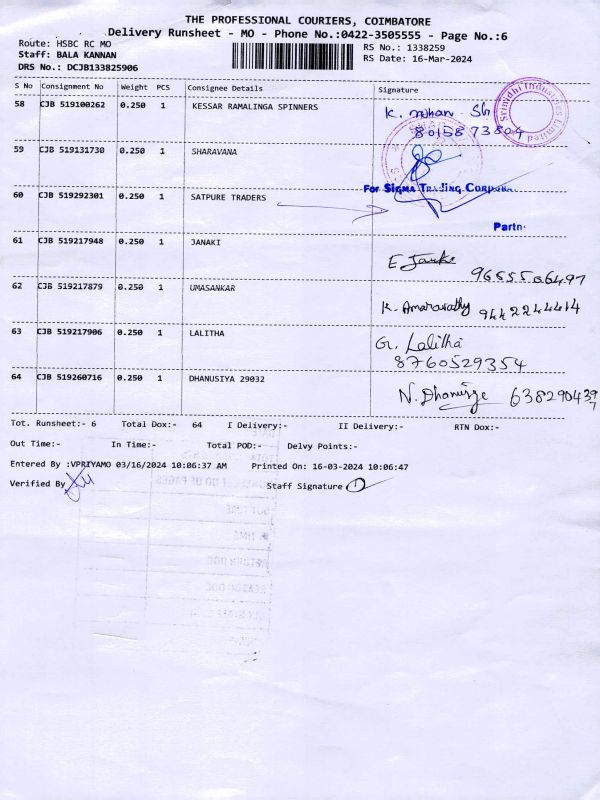 THE PROFESSIONAL COURIERS, COIMBATORE
Delivery Runsheet - MO - Phone No.:0422-3505555 - Page No.:6
Route: HSBC RC MO
Staff: BALA KANNAN
DRS No.: DCJB133825906
RS No.: 1338259
RS Date: 16-Mar-2024
S No Consignment No Weight PCS Consignee Details Signature
58 CJB 519100262 0.250 1 KESSAR RAMALINGA SPINNERS K. mohan
Srinidhi Industries Limited
59 CJB 519131730 0.250 1 SHARAVANA
60 CJB 519292301 0.250 1 SATPURE TRADERS
For SIGMA TRADING
Partn
61 CJB 519217948 0.250 1 JANAKI
62 CJB 519217879 0.250 1 UMASANKAR K. Amaravathy 9442244414
63 CJB 519217906 0.250 1 LALITHA G. Lalitha
8760529354
64 CJB 519260716 0.250 1 DHANUSIYA 29032 N.
Tot. Runsheet:- 6 Total Dox:- 64 I Delivery:- II Delivery:- RTN Dox:-
Out Time:- In Time:- Total POD:- Delvy Points:-
Entered By :VPRIYAMO 03/16/2024 10:06:37 AM Printed On: 16-03-2024 10:06:47
Verified By Staff Signature